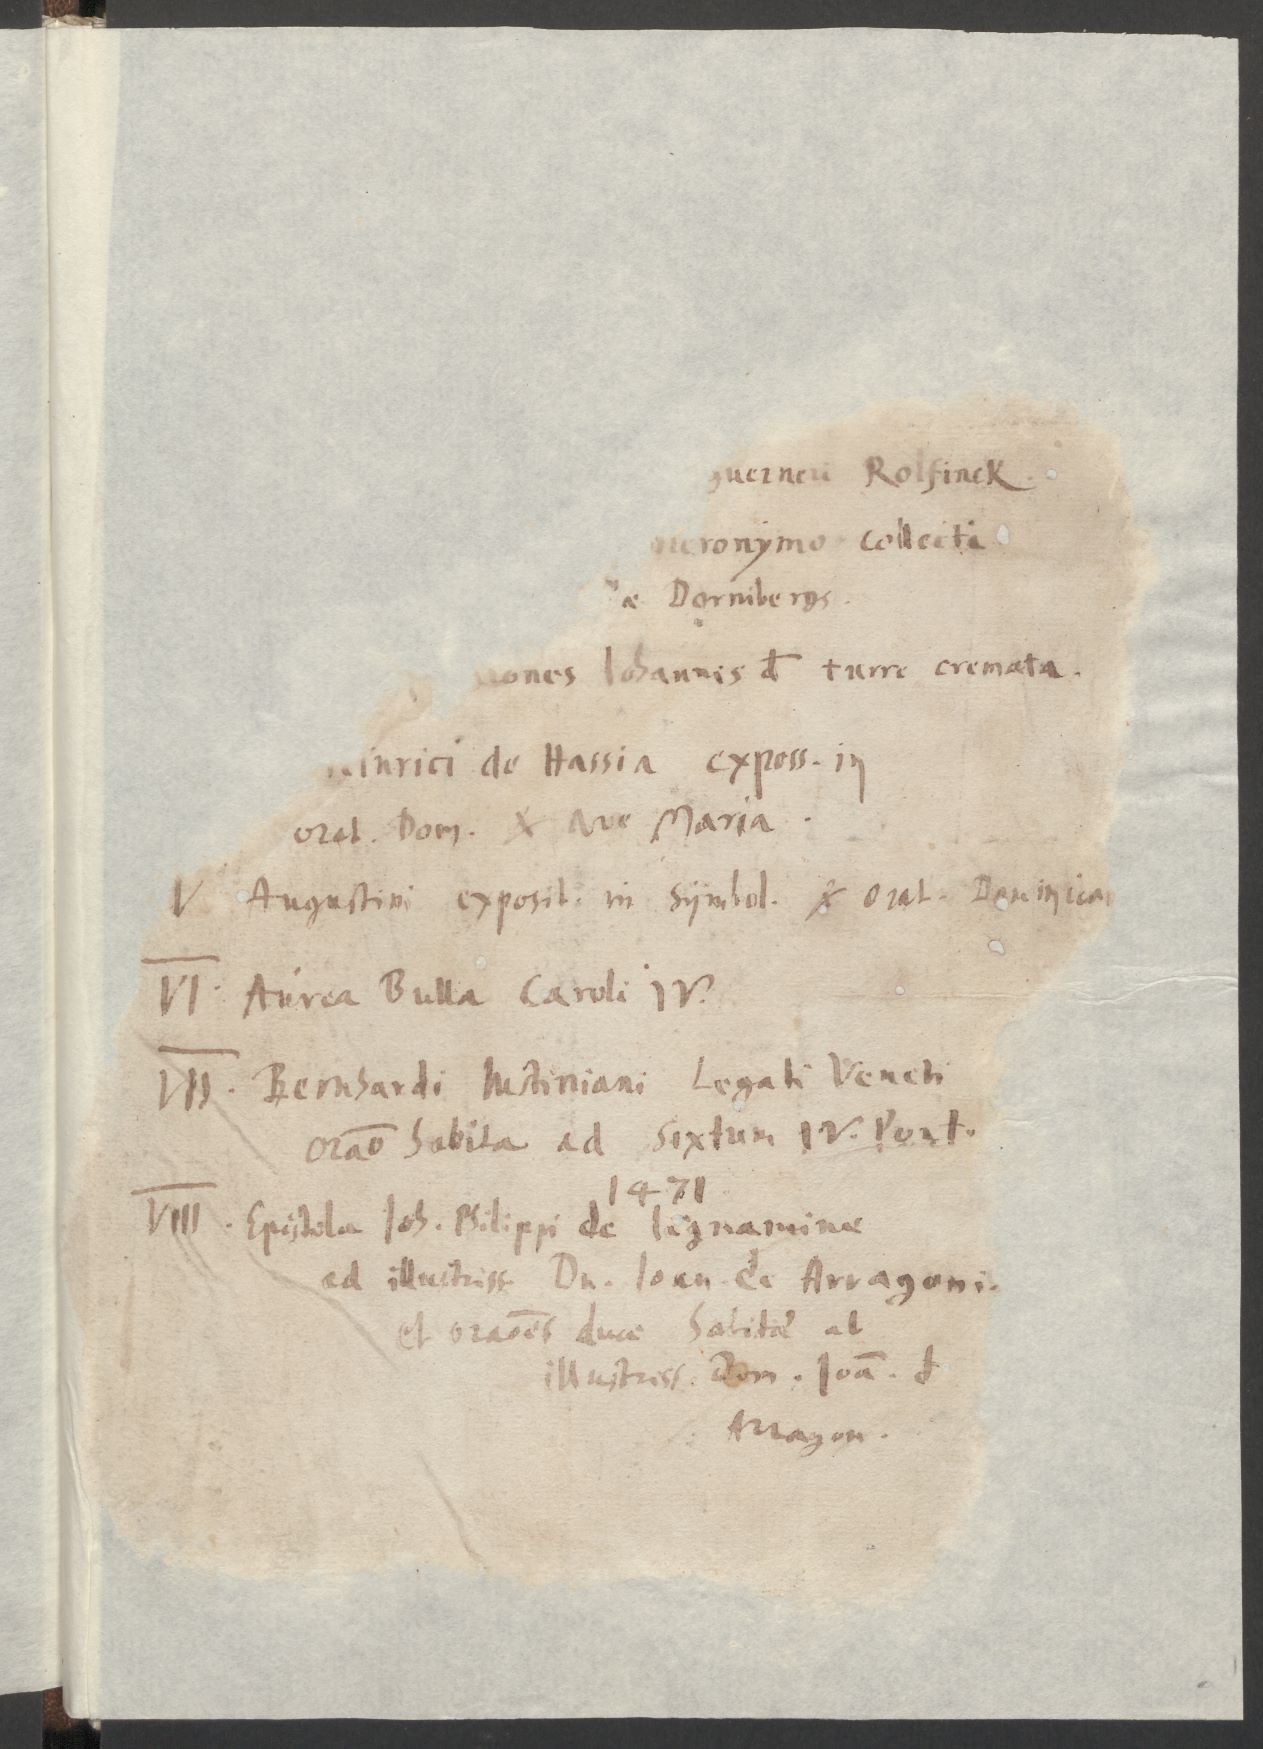 guerneri Rolfinck.
hieronymo collecti
æ Dornibergs.
iones Iohannis đ turre cremata.
inrici de Hassia exposs. in
orat. Dom. & Ave Maria.
V Augustini exposit. in Sÿmbol. & orat. Dominicam
VI. Aúrea Bulla Caroli IV.
VII. Bernhardi Iustiniani Legati Veneti
oraō habita ad Sixtum IV. Pont.
1471
VIII. Epistola Joh. Philippi de lignamine
ad illustriss. Dn. Ioan. de Arragoni.
et oraōēs duce habitæ ad
illustriss. Dom. Joā. đ
Arragon.